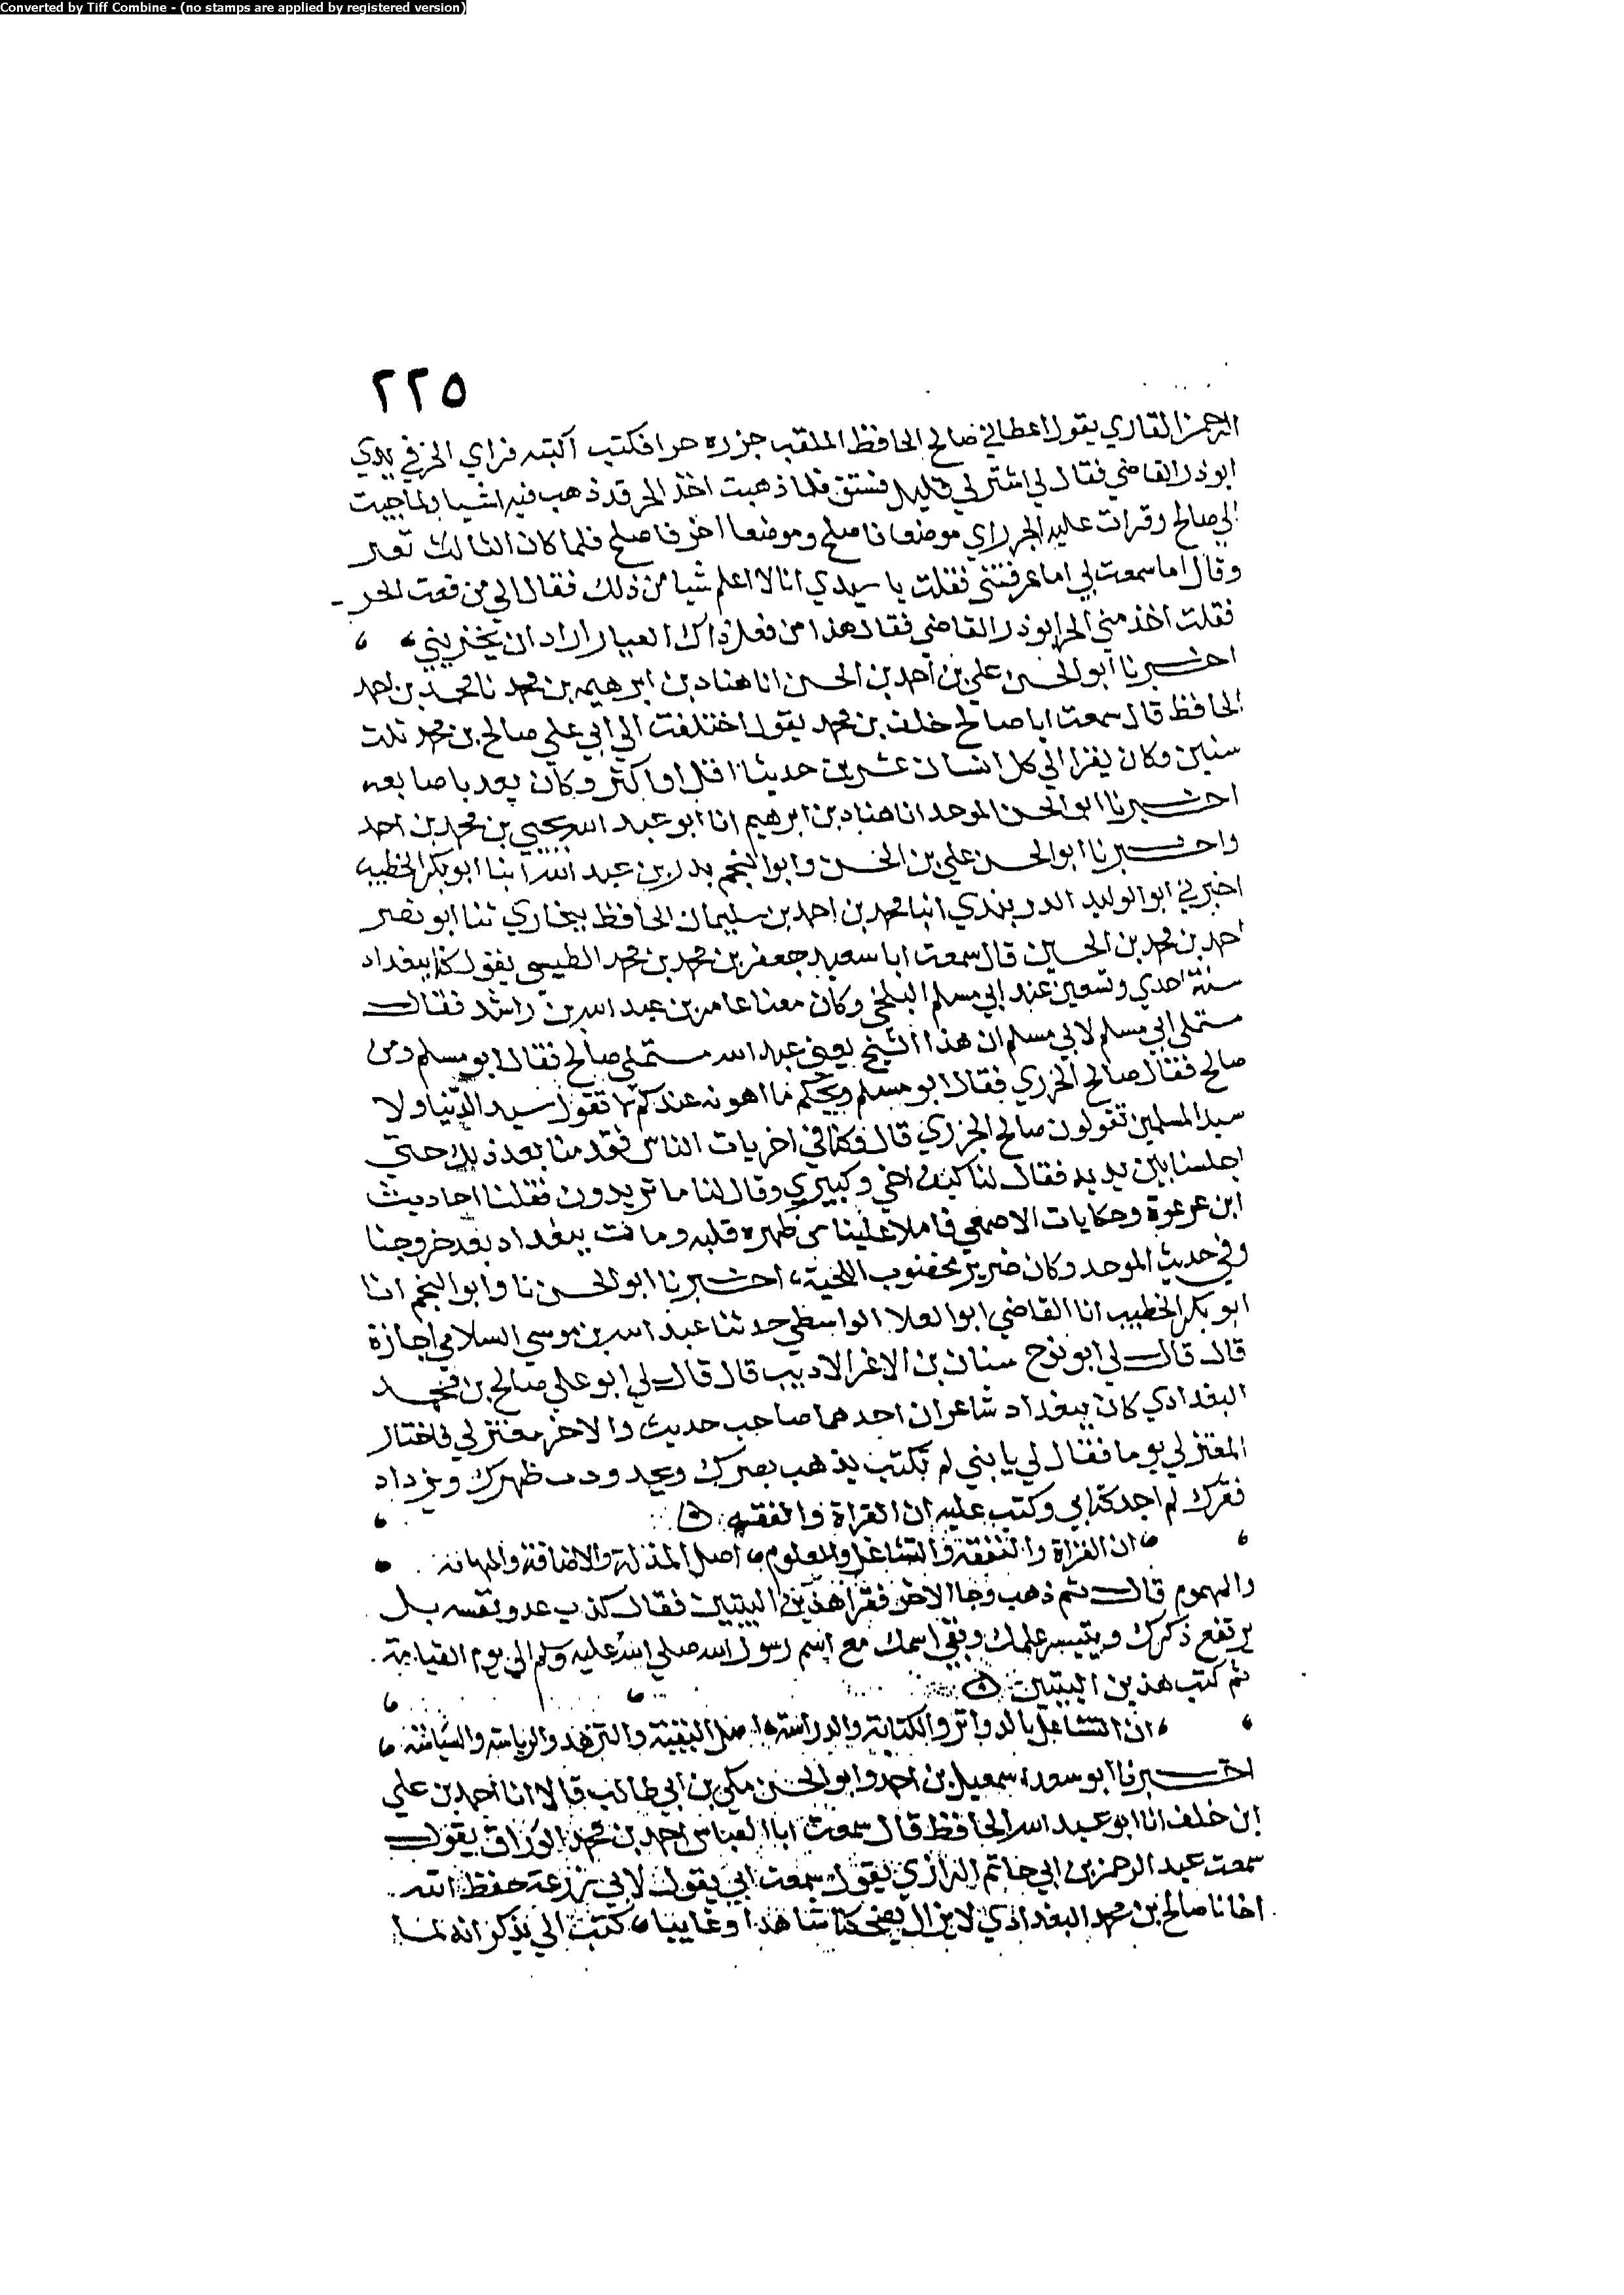 Converted by Tiff Combine - (no stamps are applied by registered version)
٢٢٥
الرحمن القاري يقول اعطاني صالح الحافظ الملقب جزره حرا فكتب اكبته فراي الحر في يدي
ابو ذر القاضي فقال لي اشتر لي قليل فستق فلما ذهبت اخذ الحر قد ذهب فيه اشيا ولما جيت
الي صالح وقرات عليه الجر راي موضعا فاصلح وموضعا اخر فاصلح فلما كان الثالث تغير
وقال اما سمعت لي اما عرفتني فقلت يا سيدي انا لا اعلم شيا من ذلك فقال الي من دفعت الحر
فقلت اخذ مني الحر ابو ذر القاضي فقال هذا من فعل ذاك العيار اراد ان يخزيني
اخبرنا ابو الحسن علي بن احمد بن الحسن انا هناد بن ابرهيم بن محمد نا محمد بن احمد
الحافظ قال سمعت ابا صالح خلف بن محمد يقول اختلفت الي ابي علي صالح بن محمد ثلث
سنين وكان يقرا الي كل انسان عشرين حديثا اقل او اكثر وكان يعد باصابعه
اخبرنا ابو الحسن الموحد انا هناد بن ابرهيم انا ابو عبد الله يحيي بن محمد بن احمد
واخبرنا ابو الحسن علي بن الحسن وابو النجم بدر بن عبد الله انبا ابو بكر الخطيب
اخبرني ابو الوليد الدربندي انبا محمد بن احمد بن سليمان الحافظ ببخاري ثنا ابو نصر
احمد بن محمد بن الحسين قال سمعت ابا سعيد جعفر بن محمد بن محمد الطيبي يقول كنا ببغداد
سنة احدي وتسعين عند ابي مسلم البلخي وكان معنا عامر بن عبد الله بن راشد فقال
مستملي ابي مسلم لابي مسلم ان هذا الشيخ يعني عبد الله مستملي صالح فقال ابو مسلم ومن
صالح فقال صالح الجزري فقال ابو مسلم ويحكم ما اهونه عندكم لا تقول سيد الدنيا ولا
سيد المسلمين تقولون صالح الجزري قال فكنا في اخريات الناس فقدمنا بعد ذلك حتي
اجلسنا بين يديه فقال لنا كيف اخي وكبيري وقال لنا ما تريدون فقلنا احاديث
ابن عرعرة وحكايات الاصمعي فاملا علينا من ظهره قلبه ومات ببغداد بعد خروجنا
وفي حديث الموحد وكان ضرير مخضوب اللحية، اخبرنا ابو الحسن نا وابو النجم انا
ابو بكر الخطيب انا القاضي ابو العلا الواسطي حدثنا عبد الله بن موسي السلامي اجازة
قال قال لي ابو نوح سنان بن الاغر الاديب قال قال لي ابو علي صالح بن محمد
البغدادي كان ببغداد شاعران احدهما صاحب حديث والاخر معتزلي فاختار
المعتزلي يوما فقال لي يا بني لم تكتب يذهب بصرك ويحدودب ظهرك ويزداد
فقرك ثم اخذ كتابي وكتب عليه ان القراة والفقه
ان القراة والتفقه والتشاغل والعلوم، اصل المذلة والاضاقة والمهانة
والهموم قال ثم ذهب وجا الاخر فقرا هذين البيتين فقال كذب عدو نفسه بل
يرتفع ذكرك وينتشر علمك وبقي اسمك مع اسم رسول الله صلي الله عليه وسلم الي يوم القيامة
ثم كتب هذين البيتين
ان التشاغل بالدواتر والكتابة والدراسة، اصل التقية والتزهد والرياسة والسياسة
اخبرنا ابو سعد اسمعيل بن احمد وابو الحسن مكي بن ابي طالب قالا انا احمد بن علي
ابن خلف انا ابو عبد الله الحافظ قال سمعت ابا العباس احمد بن محمد الوراق يقول
سمعت عبد الرحمن بن ابي حاتم الرازي يقول سمعت ابي يقول لابي زرعة حفظ الله
اخانا صالح بن محمد البغدادي لا يزال يضحكنا شاهدا وغايبا، كتب الي يذكر انه لما